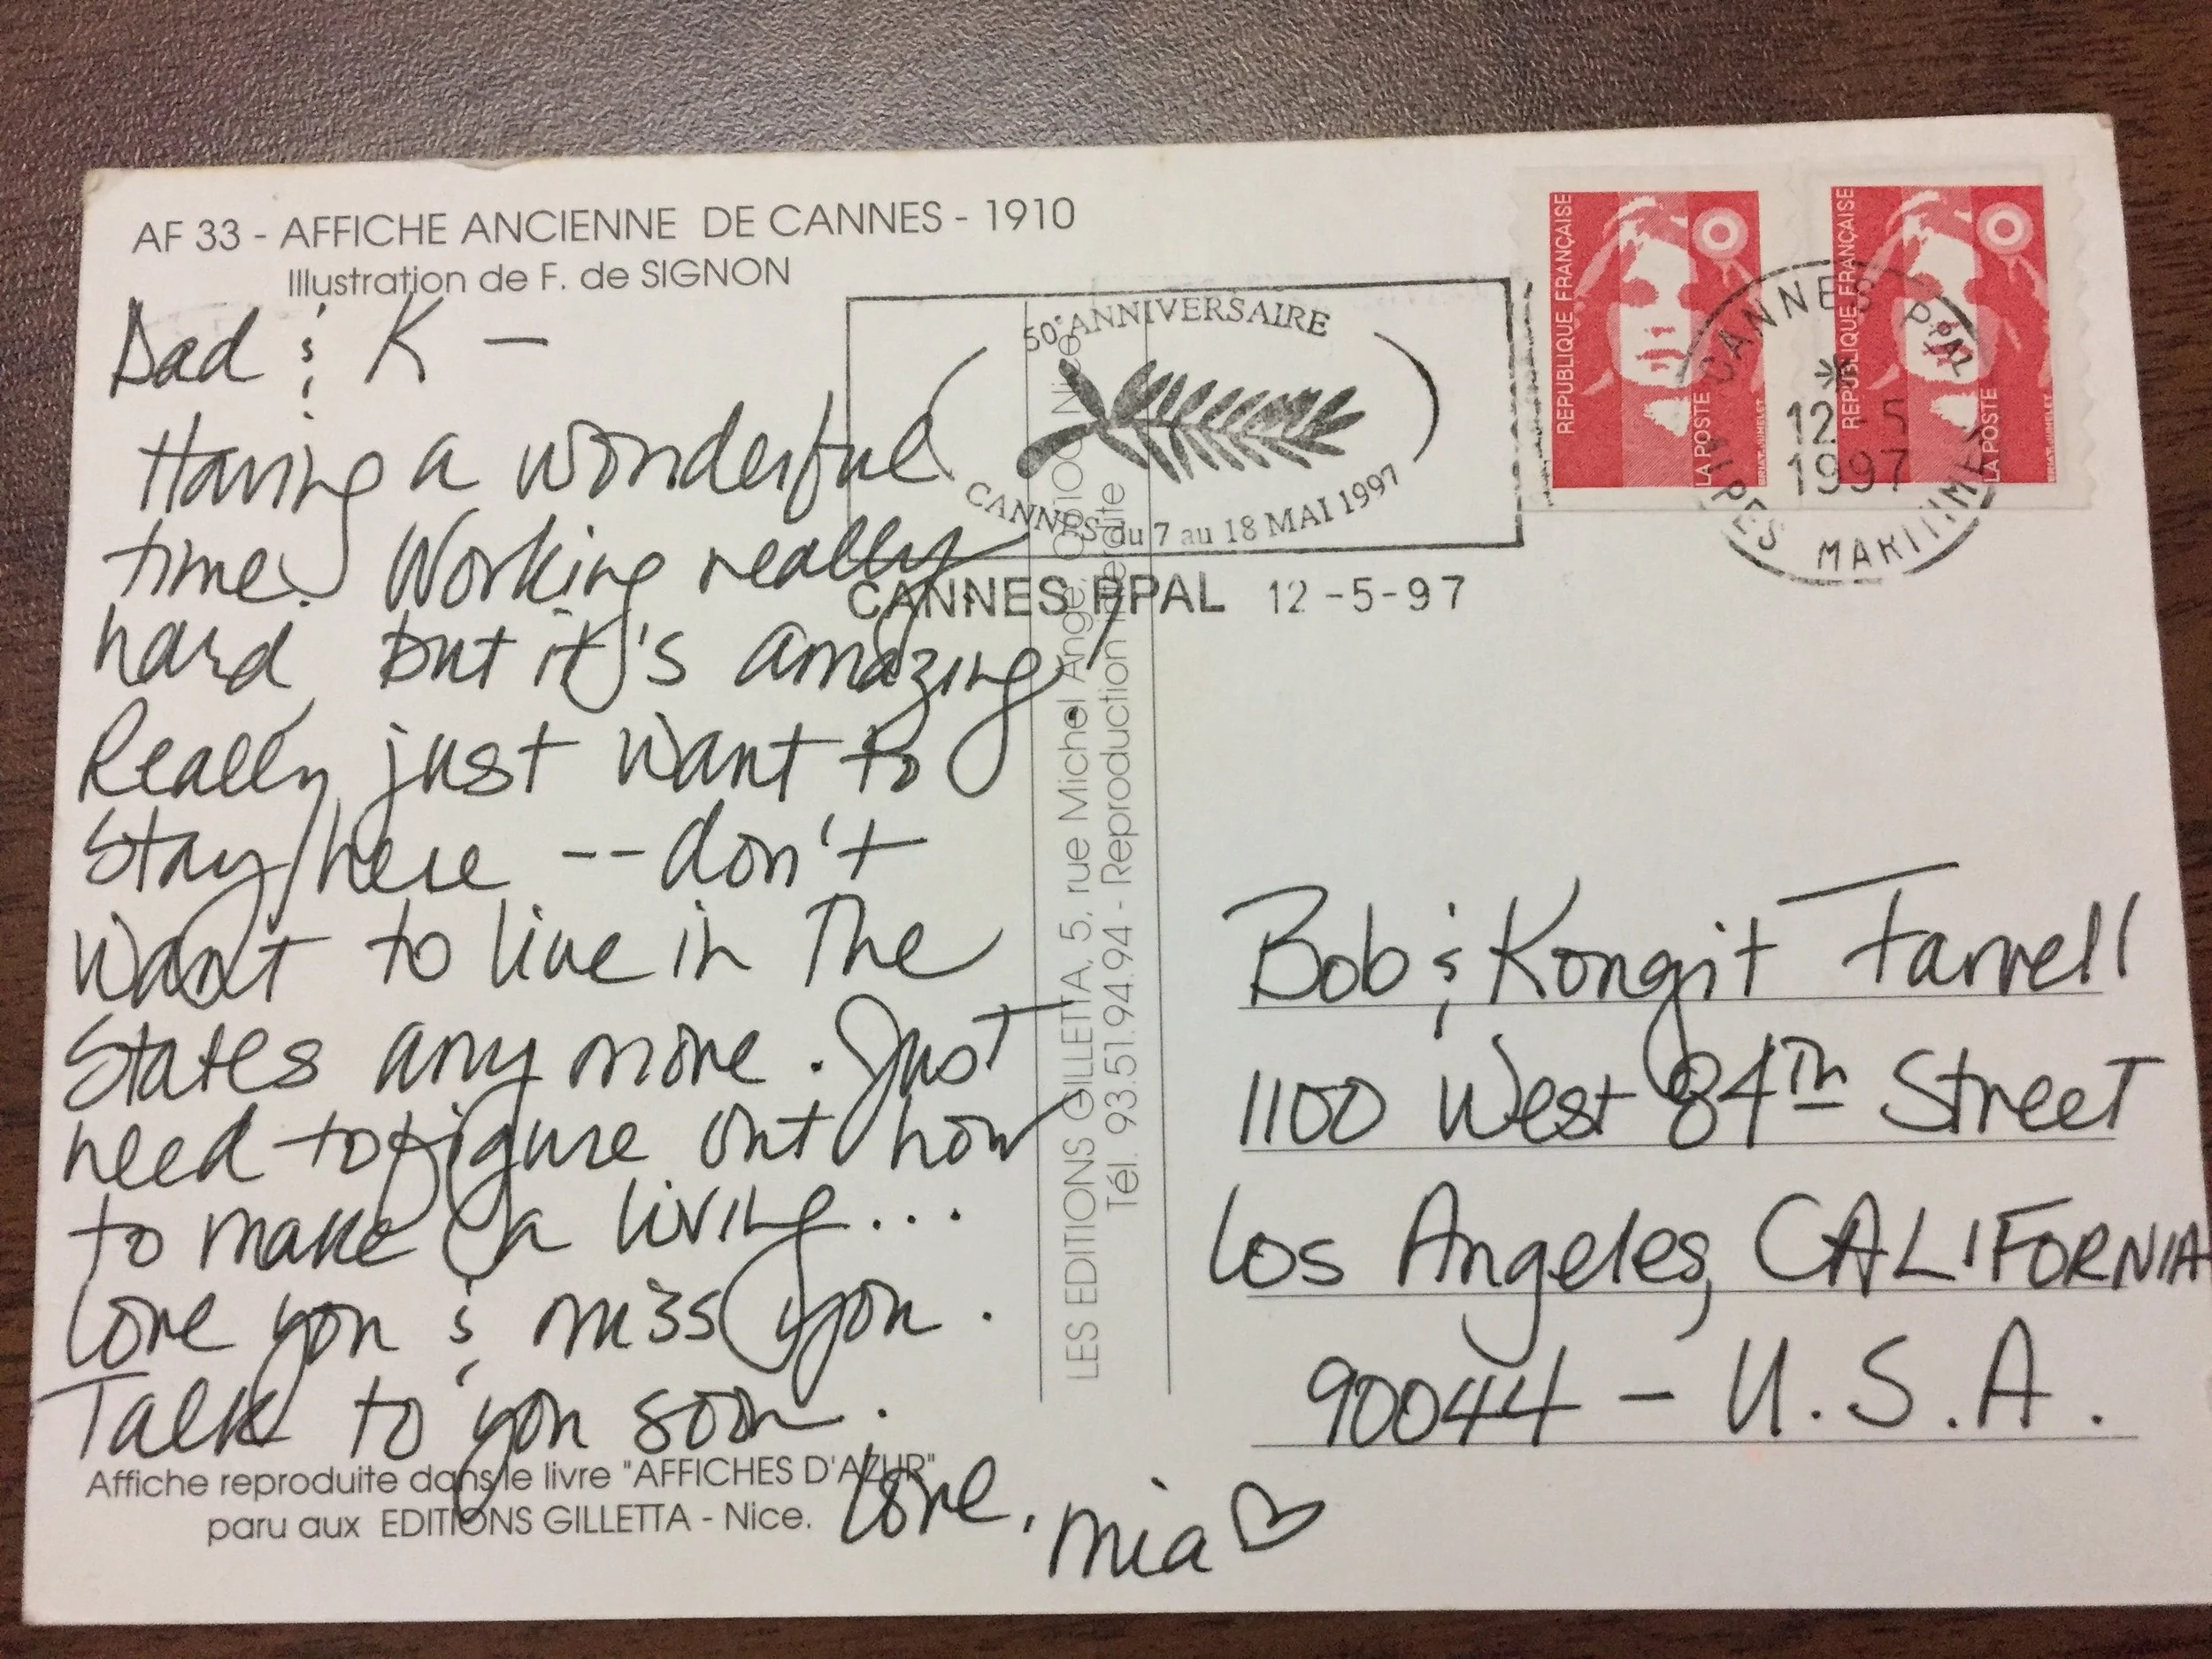 AF 33 - AFFICHE ANCIENNE DE CANNES - 1910
Illustration de F. de SIGNON
Dad & K -
Having a wonderful
time. Working really
hard but it's amazing!
Really just want to
stay here -- don't
want to live in the
States any more. Just
need to figure out how
to make a living...
Love you & miss you.
Talk to you soon.
Love, mia ♡
Affiche reproduite dans le livre "AFFICHES D'AZUR"
paru aux EDITIONS GILLETTA - Nice.
LES EDITIONS GILLETTA, 5, rue Michel Ange, 06100 Nice
Tél. 93.51.94.94 - Reproduction interdite
50e ANNIVERSAIRE
CANNES du 7 au 18 MAI 1997
CANNES PPAL 12-5-97
REPUBLIQUE FRANÇAISE
LA POSTE
REPUBLIQUE FRANÇAISE
LA POSTE
CANNES PPAL
12-5
1997
ALPES MARITIMES
Bob & Kongit Farrell
1100 West 84th Street
Los Angeles, CALIFORNIA
90044 - U.S.A.